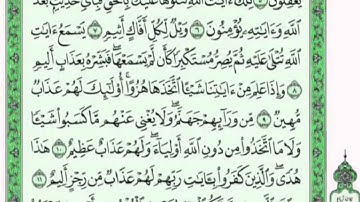 يَعْقِلُونَ ۝٥ تِلْكَ ءَايَٰتُ ٱللَّهِ نَتْلُوهَا عَلَيْكَ بِٱلْحَقِّ فَبِأَىِّ حَدِيثٍۭ بَعْدَ
ٱللَّهِ وَءَايَٰتِهِۦ يُؤْمِنُونَ ۝٦ وَيْلٌ لِّكُلِّ أَفَّاكٍ أَثِيمٍ ۝٧ يَسْمَعُ ءَايَٰتِ
ٱللَّهِ تُتْلَىٰ عَلَيْهِ ثُمَّ يُصِرُّ مُسْتَكْبِرًا كَأَن لَّمْ يَسْمَعْهَا فَبَشِّرْهُ بِعَذَابٍ أَلِيمٍ
۝٨ وَإِذَا عَلِمَ مِنْ ءَايَٰتِنَا شَيْـًٔا ٱتَّخَذَهَا هُزُوًا أُو۟لَٰٓئِكَ لَهُمْ عَذَابٌ
مُّهِينٌ ۝٩ مِّن وَرَآئِهِمْ جَهَنَّمُ وَلَا يُغْنِى عَنْهُم مَّا كَسَبُوا۟ شَيْـًٔا
وَلَا مَا ٱتَّخَذُوا۟ مِن دُونِ ٱللَّهِ أَوْلِيَآءَ وَلَهُمْ عَذَابٌ عَظِيمٌ ۝١٠ هَٰذَا
هُدًى وَٱلَّذِينَ كَفَرُوا۟ بِـَٔايَٰتِ رَبِّهِمْ لَهُمْ عَذَابٌ مِّن رِّجْزٍ أَلِيمٌ ۝١١